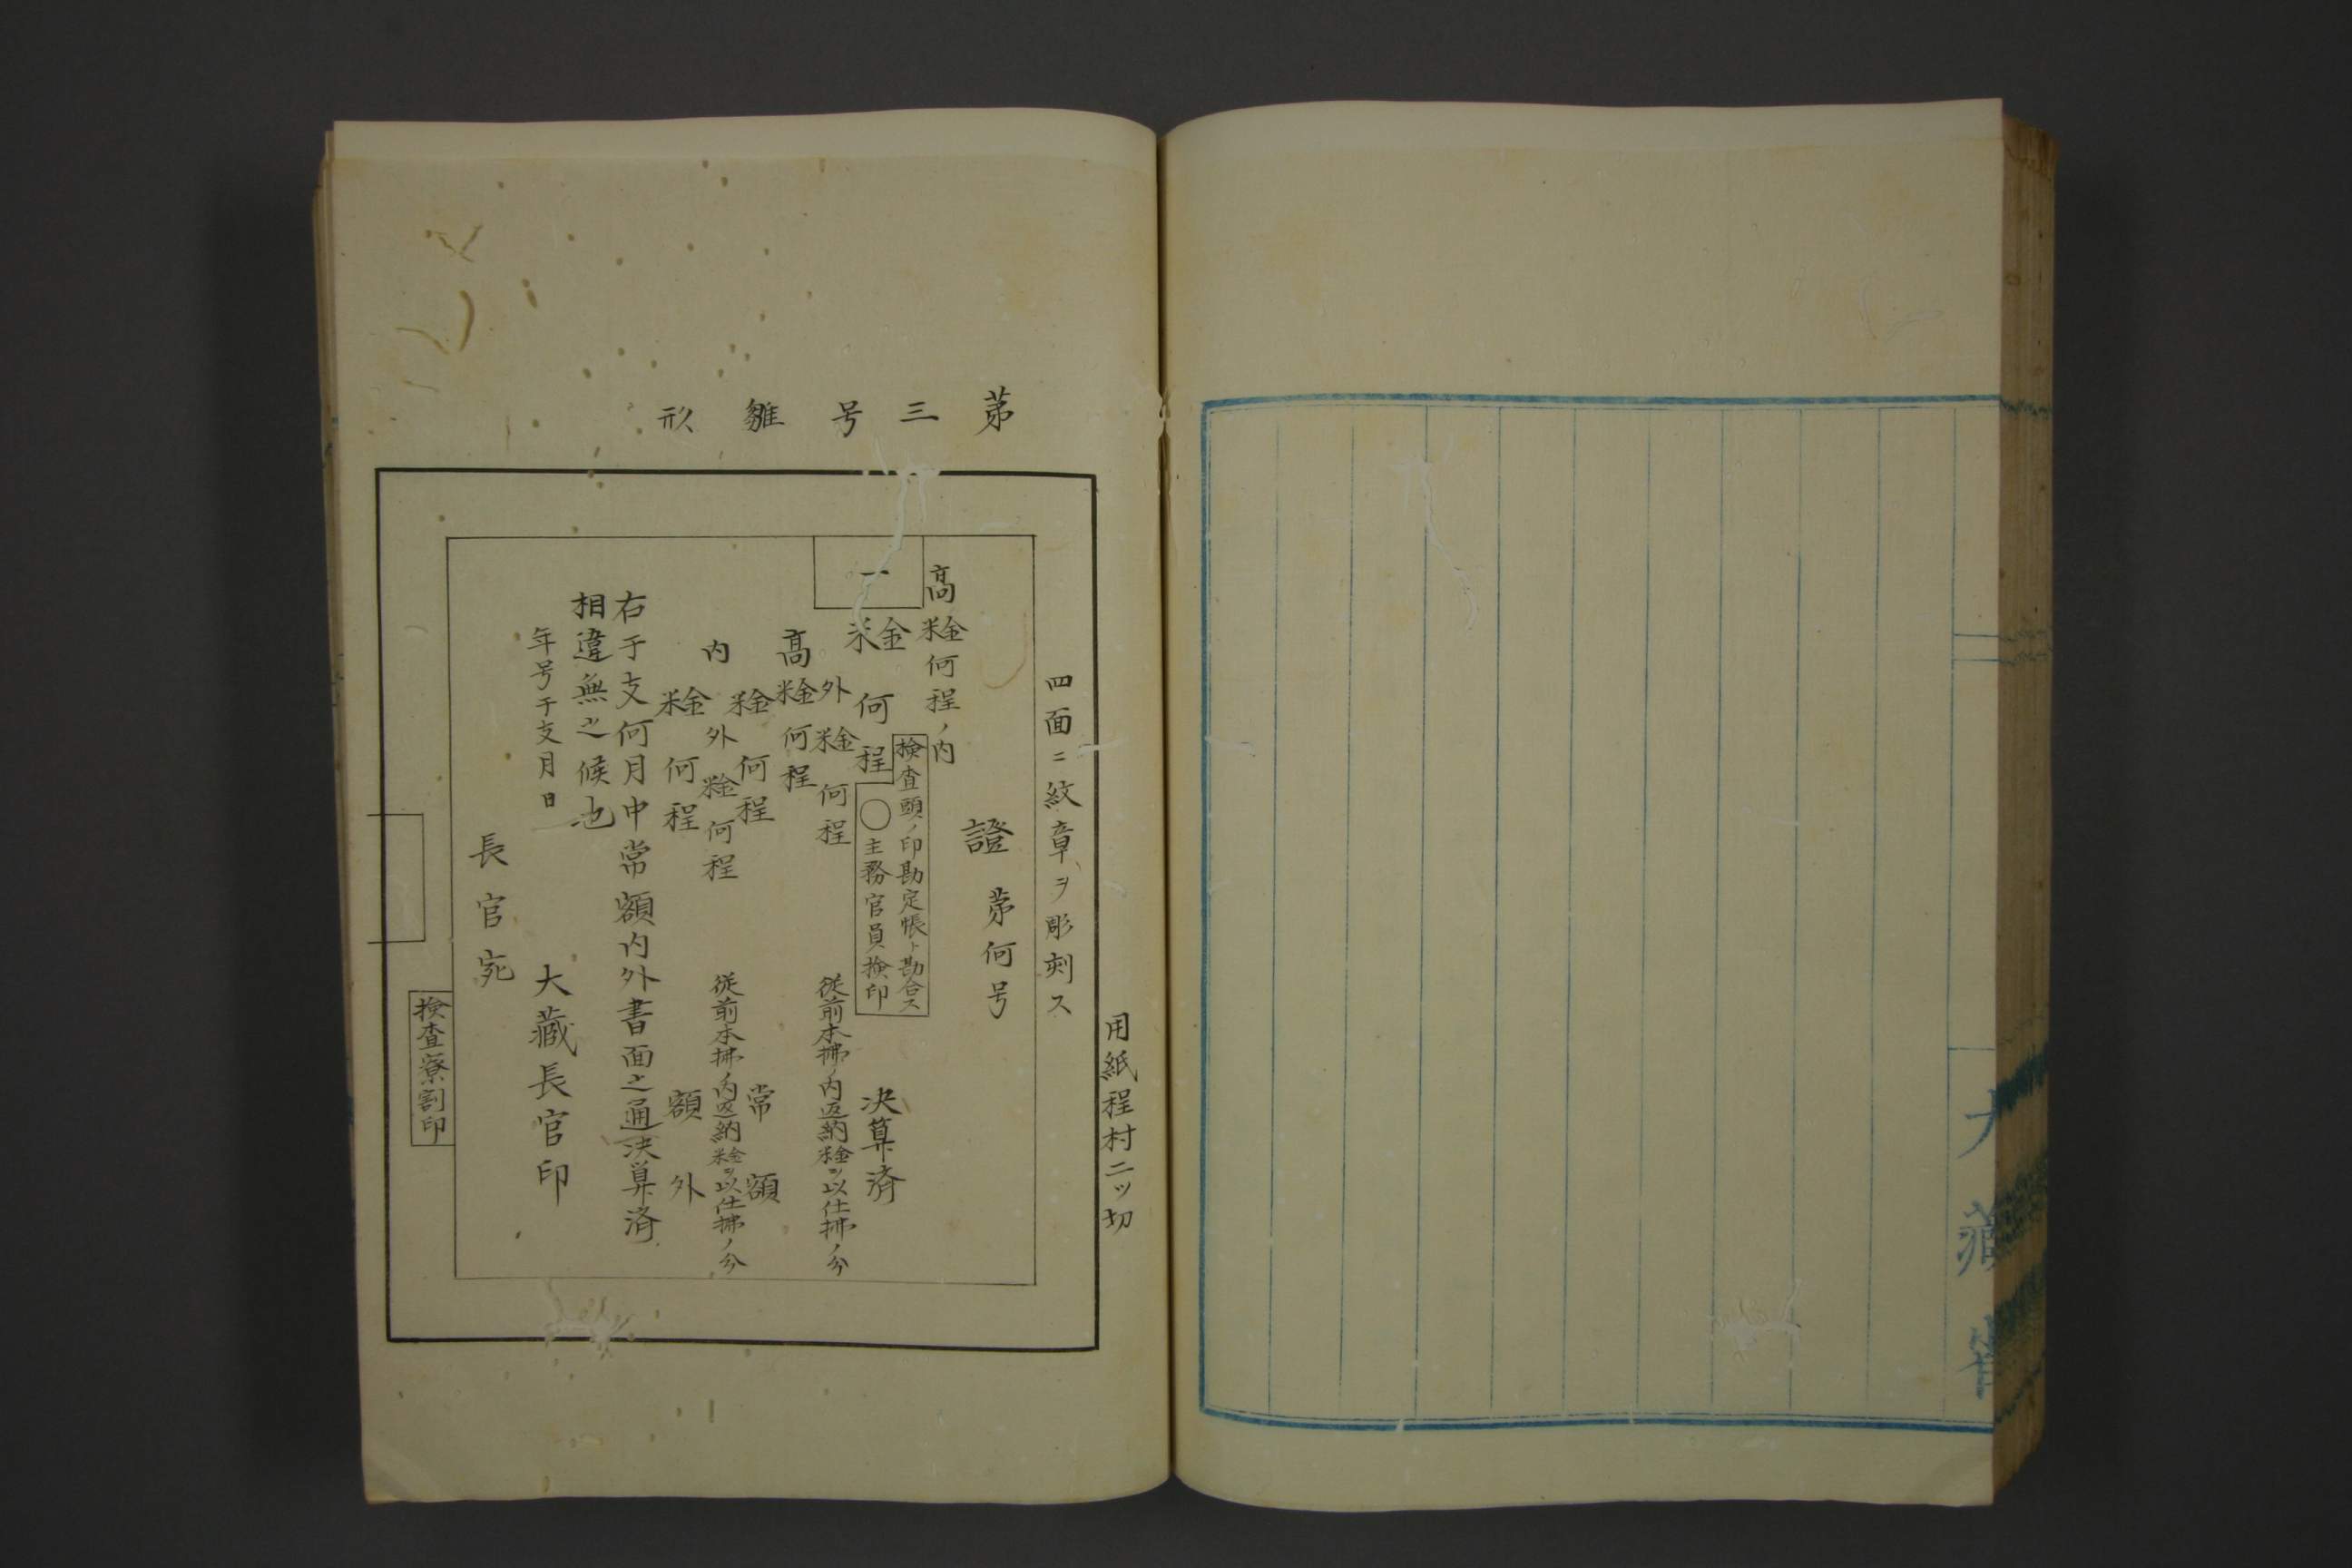 大藏省
第三号雛形
用紙程村二ツ切
四面ニ紋章ヲ彫刻ス
證 第何号
高米金何程ノ内
検査頭ノ印勘定帳ト勘合ス
〇主務官員検印
一米金何程 決算済
外米金何程 従前本拂ノ内返納米金ヲ以仕拂ノ分
高米金何程
内米金何程 常額
外米金何程 従前本拂ノ内返納米金ヲ以仕拂ノ分
米金何程 額外
右干支何月中常額内外書面之通決算済
相違無之候也
年号干支月日
大藏長官印
長官宛
検査寮割印